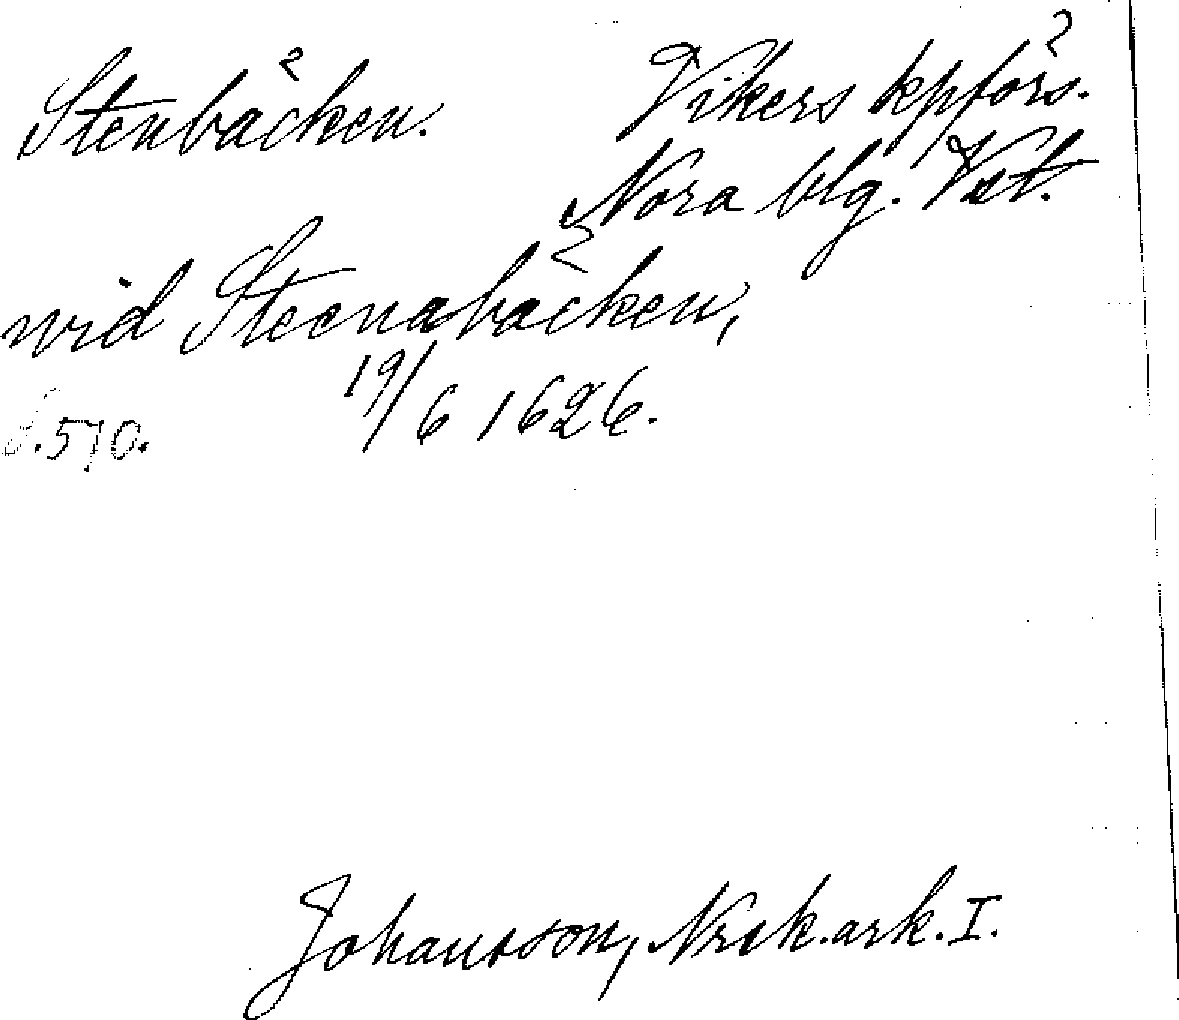 Stenbäcken. Vikers kpförs.
Nora blg. Vst.
wid Steenabäcken,
19/6 1626.
S. 570.
Johansson, Nrsk. ark. I.